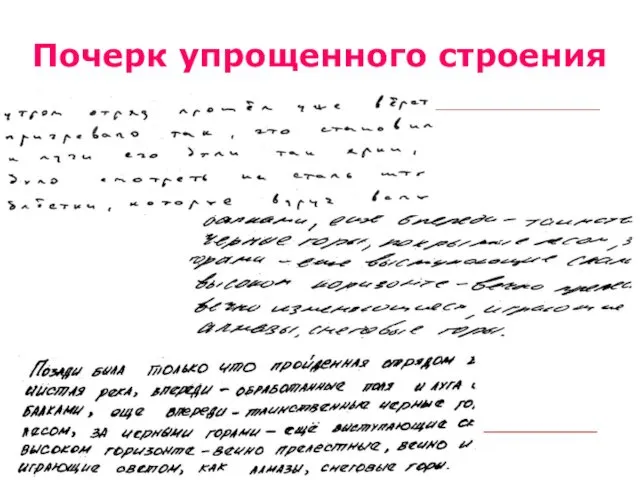 Почерк упрощенного строения
утром отряд прошёл уже вёрст
пригревало так, что становил
и лучи его были так ярки,
было смотреть на сталь шты
блестки, которые вдруг
балками, еще впереди - таинств
черные горы, покрытые лесом, з
горами - еще выступающие скал
высоком горизонте - вечно преле
вечно изменяющиеся, играющие
алмазы, снеговые горы.
Позади была только что пройденная отрядом
чистая река, впереди - обработанные поля и луга с
балками, еще впереди - таинственные черные го
лесом, за черными горами - ещё выступающие ск
высоком горизонте - вечно прелестные, вечно и
играющие светом, как алмазы, снеговые горы.